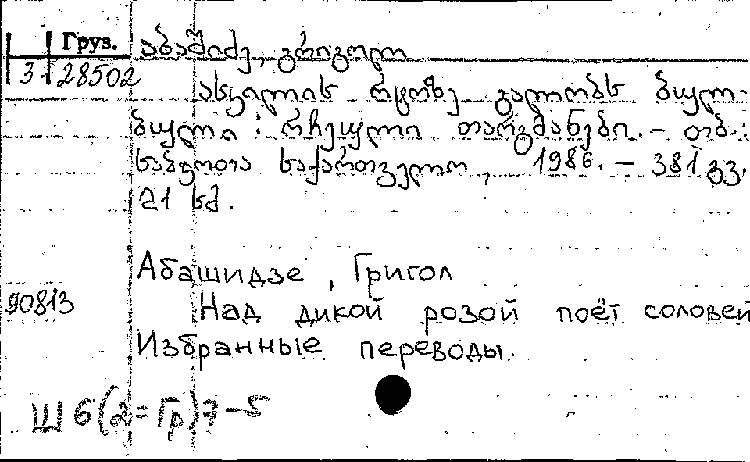 Груз.
აბაშიძე, გრიგოლ
3 28502
ასკილის რტოზე გალობს ბულ-
ბული : რჩეული თარგმანები. – თბ. :
საბჭოთა საქართველო, 1986. – 381 გვ.
21 სმ.
Абашидзе, Григол
90813
Над дикой розой поёт соловей
Избранные переводы.
Ш 6(2=Гр)7-5